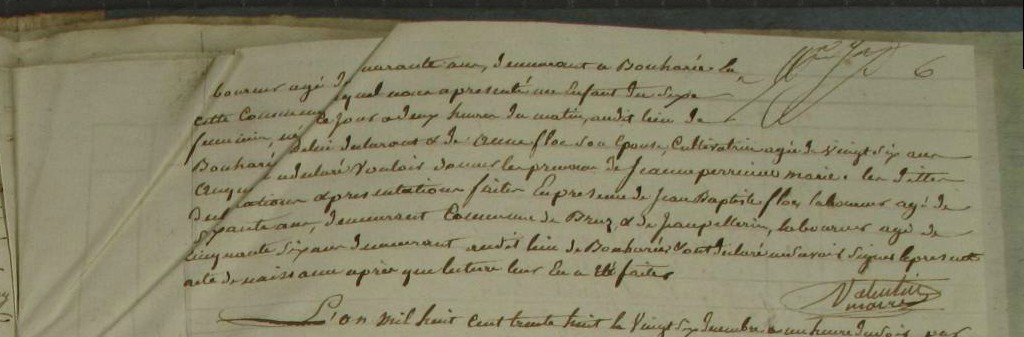 boureur agé de quarante ans, demeurant a Bouharée la
6
cette Commune lequel nous a présenté un Enfant du Sexe
feminin, né ce jour a deux heures du matin, audit lieu de
Bouharée de lui déclarant & de anne floc son Epouse, Cultivatrice agée de vingt six ans
auquel a déclaré vouloir donner les prenoms de Jeanne perrinne marie. les dittes
declaration & presentation faites En presence de Jean Baptiste floc, laboureur agé de
soixante ans, demeurant Commune de Bruz, & de Jean pellerin, laboureur agé de
cinquante six ans demeurant audit lieu de Bouharée & ont déclaré ne savoir signer le present
acte de naissance après que lecture leur En a été faites
Valentin
maire
L'an mil huit cent trente huit le vingt six decembre a une heure du soir par